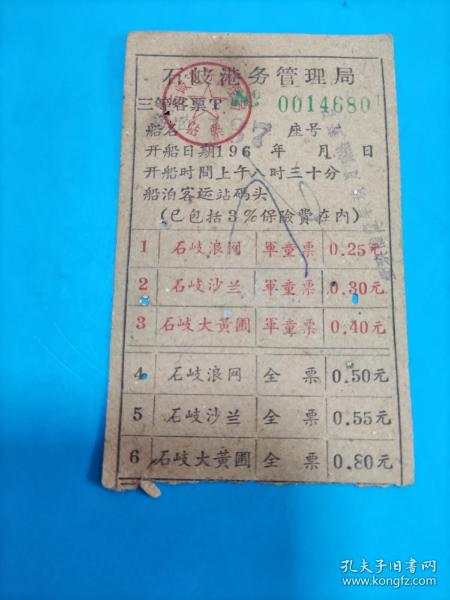 石岐港务管理局
三等客票T № 0014680
船名 37 座号
开船日期196 年 月 日
开船时間上午八时三十分
船泊客运站碼头
(已包括3%保險費在內)
1 石岐浪网 軍童票 0.25元
2 石岐沙兰 軍童票 0.30元
3 石岐大黃圃 軍童票 0.40元
4 石岐浪网 全票 0.50元
5 石岐沙兰 全票 0.55元
6 石岐大黃圃 全票 0.80元
孔夫子旧书网
www.kongfz.com